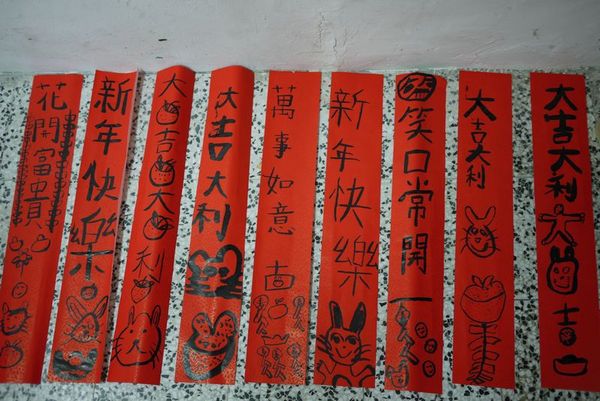 花開富貴
新年快樂
大吉大利
大吉大利
萬事如意
新年快樂
笑口常開
大吉大利
大吉大利